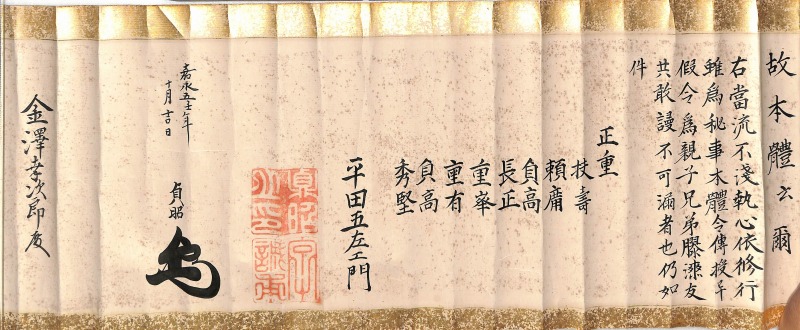 故本體云爾
右當流不淺執心依修行
雖為秘事本體令傳授畢
假令為親子兄弟膠漆友
共敢謾不可漏者也仍如
件
正重
扶壽
頼庸
負高
長正
重峯
重有
負高
秀堅
平田五左エ門
嘉永五壬子年
十月吉日
貞昭
金澤幸次郎殿